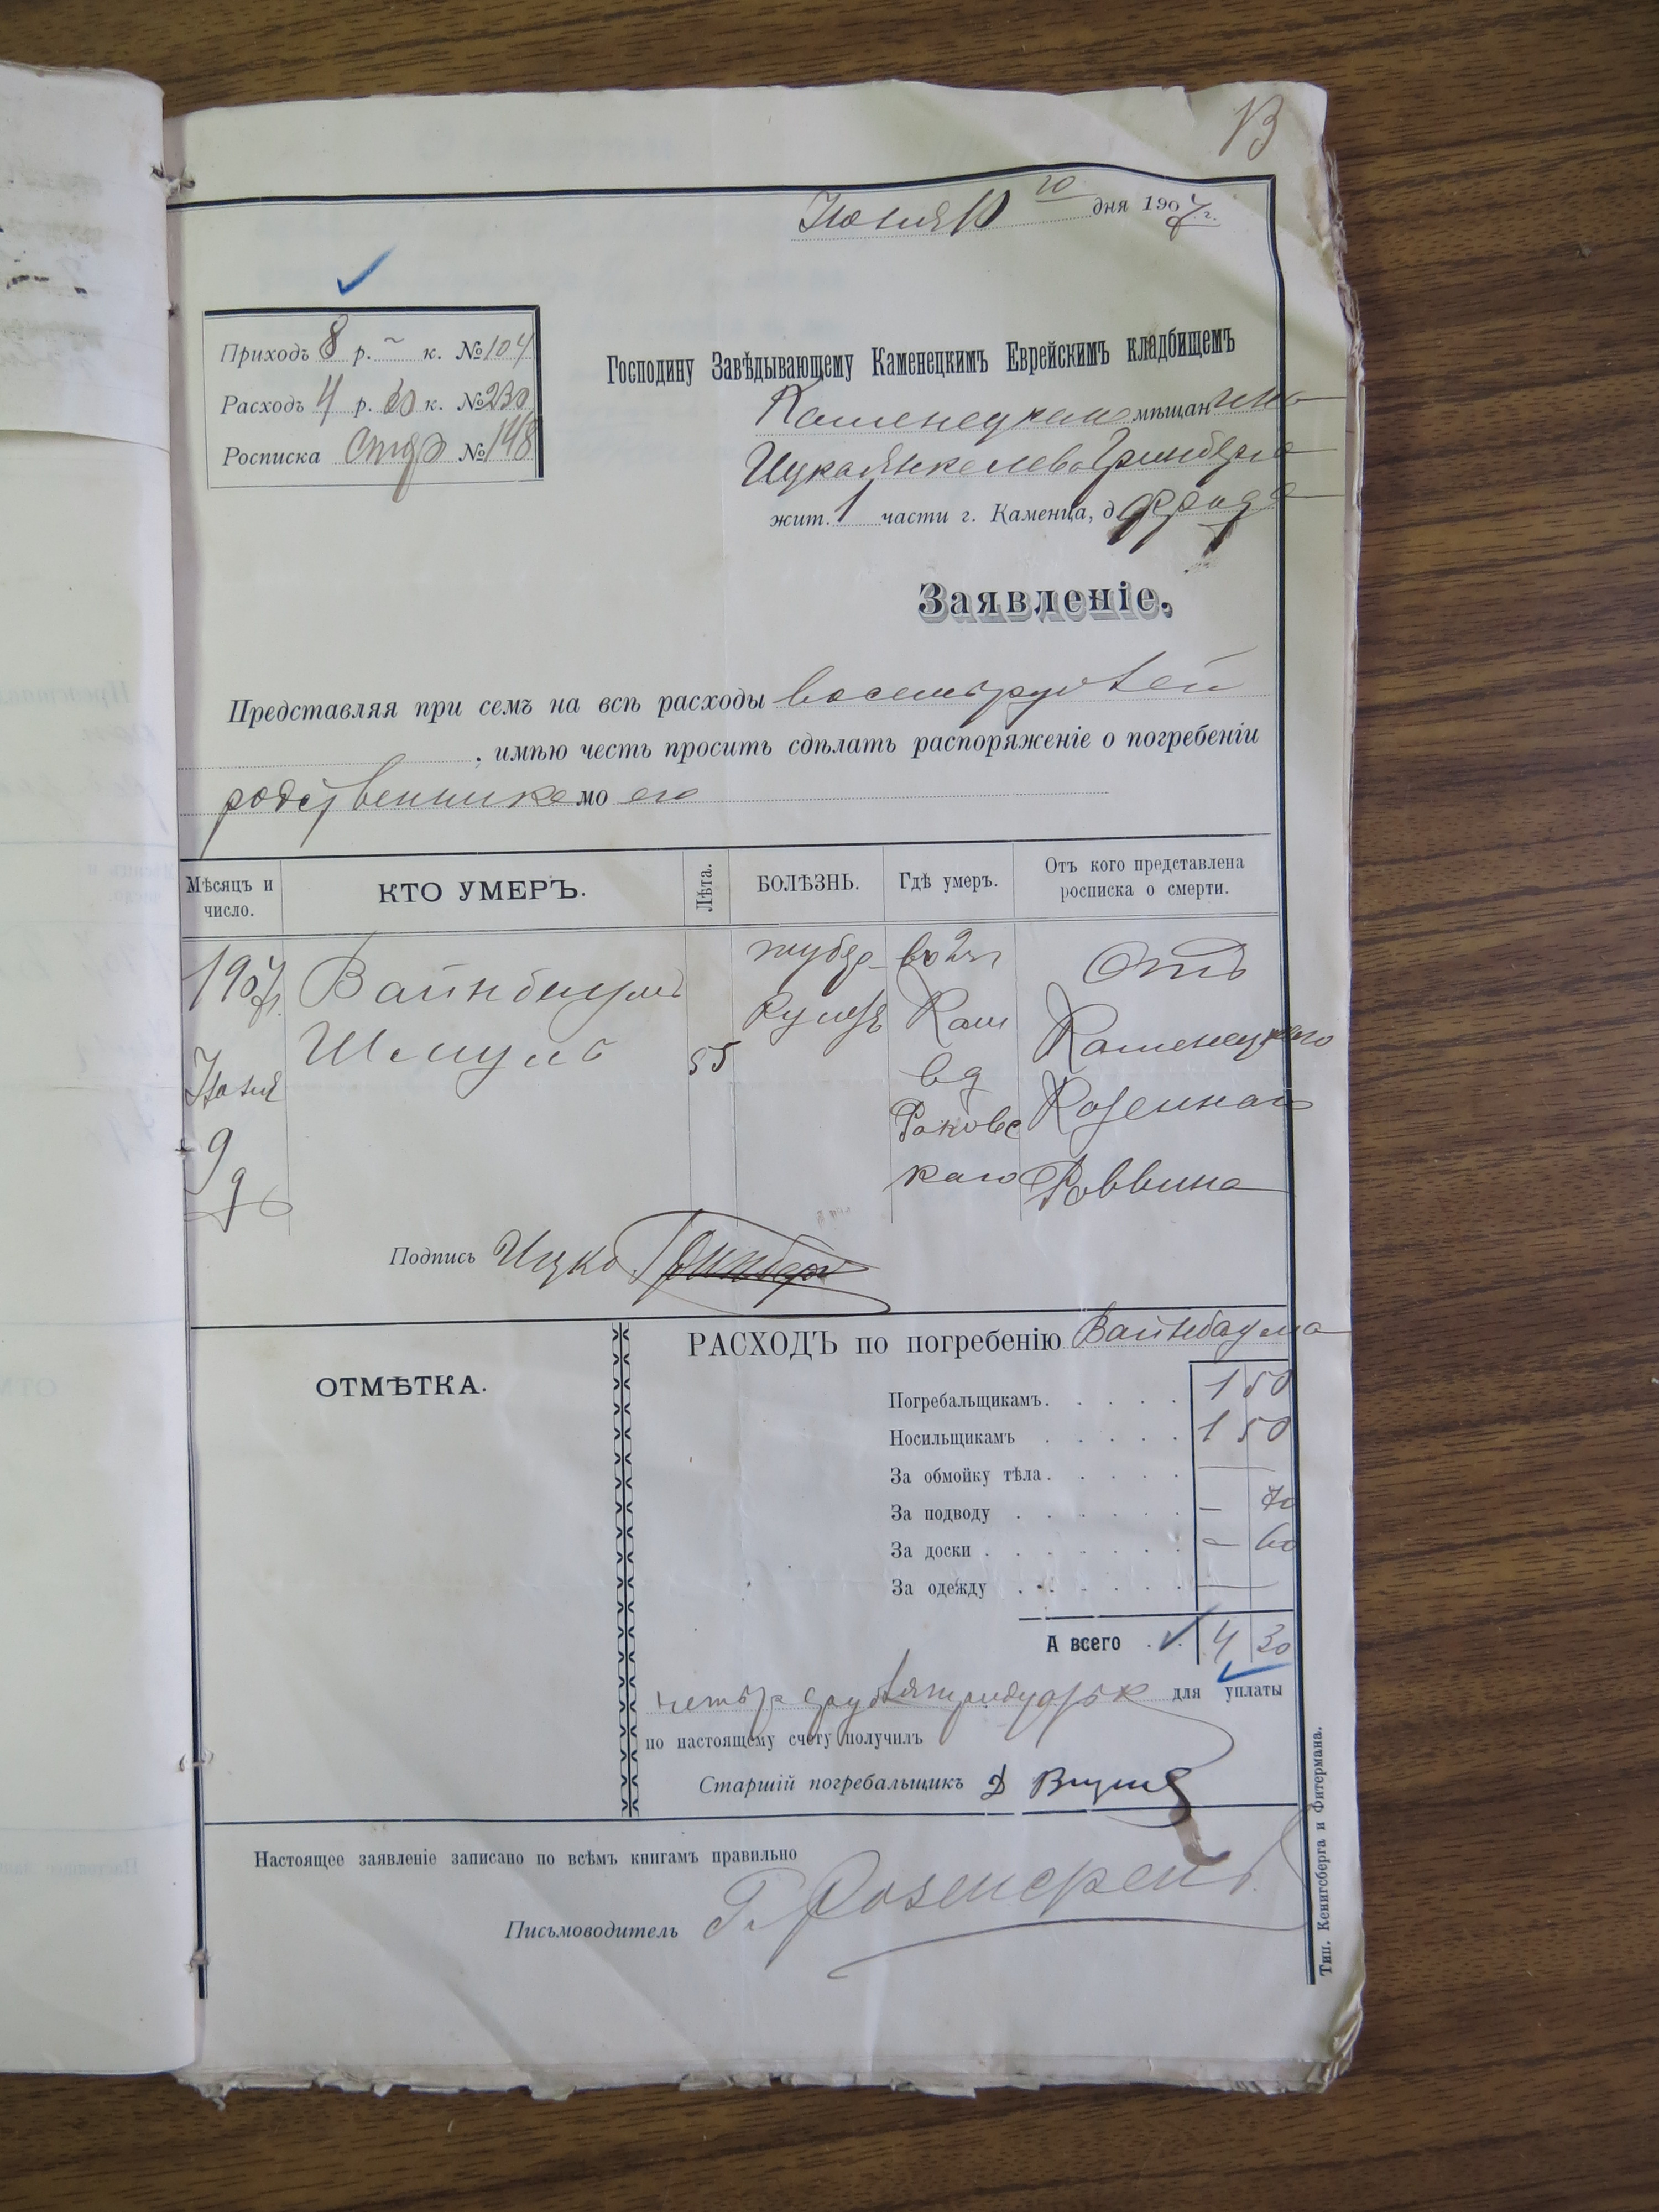 13
Іюня 10 10 дня 1907 г.
Приходъ 8 р. ~ к. №104
Расходъ 4 р. 30 к. №230
Росписка №148
Господину Завѣдывающему Каменецкимъ Еврейскимъ кладбищемъ
Каменецкаго мѣщанина
Ицка Янкелева Гринберга
жит. 1 части г. Каменца, д.
Заявленіе.
Представляя при семъ на всѣ расходы восемь рублей
, имѣю честь просить сдѣлать распоряженіе о погребеніи
родственника моего
Мѣсяцъ и число. КТО УМЕРЪ. Лѣта. БОЛѢЗНЬ. Гдѣ умеръ. Отъ кого представлена росписка о смерти.
1907 г. Вайнбаумъ тубер- во 2 ч Отъ
Шмуль 55 кулезъ Кам Каменецкаго
Іюня в д Казеннаго
9 Раковс Раввина
д каго
Подпись Ицко Гринберг
ОТМѢТКА.
РАСХОДЪ по погребенію Вайнбаума
Погребальщикамъ. . . . . 1 50
Носильщикамъ . . . . . 1 50
За обмойку тѣла. . . . . —
За подводу . . . . . . — 70
За доски . . . . . . . — 60
За одежду . . . . . . —
А всего . . 4 30
четыре рубля тридцать к для уплаты
по настоящему счету получилъ
Старшій погребальщикъ Д
Настоящее заявленіе записано по всѣмъ книгамъ правильно
Письмоводитель Г. Розенкренъ
Тип. Кенигсберга и Фитермана.